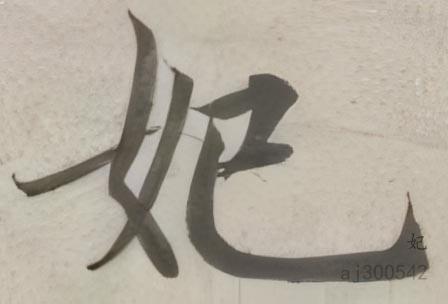 妃
妃
aj300542